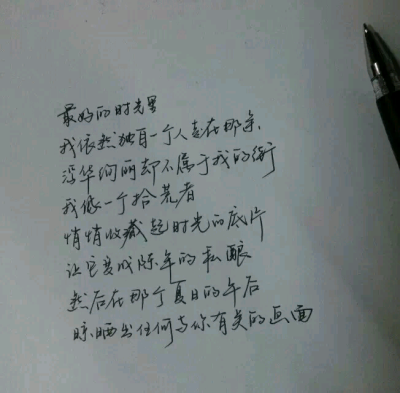 最好的时光里
我依然独自一个人走在那条
浮华绚丽却不属于我的街
我像一个拾荒者
悄悄收藏起时光的底片
让它变成陈年的私酿
然后在那个夏日的午后
晾晒出任何与你有关的画面